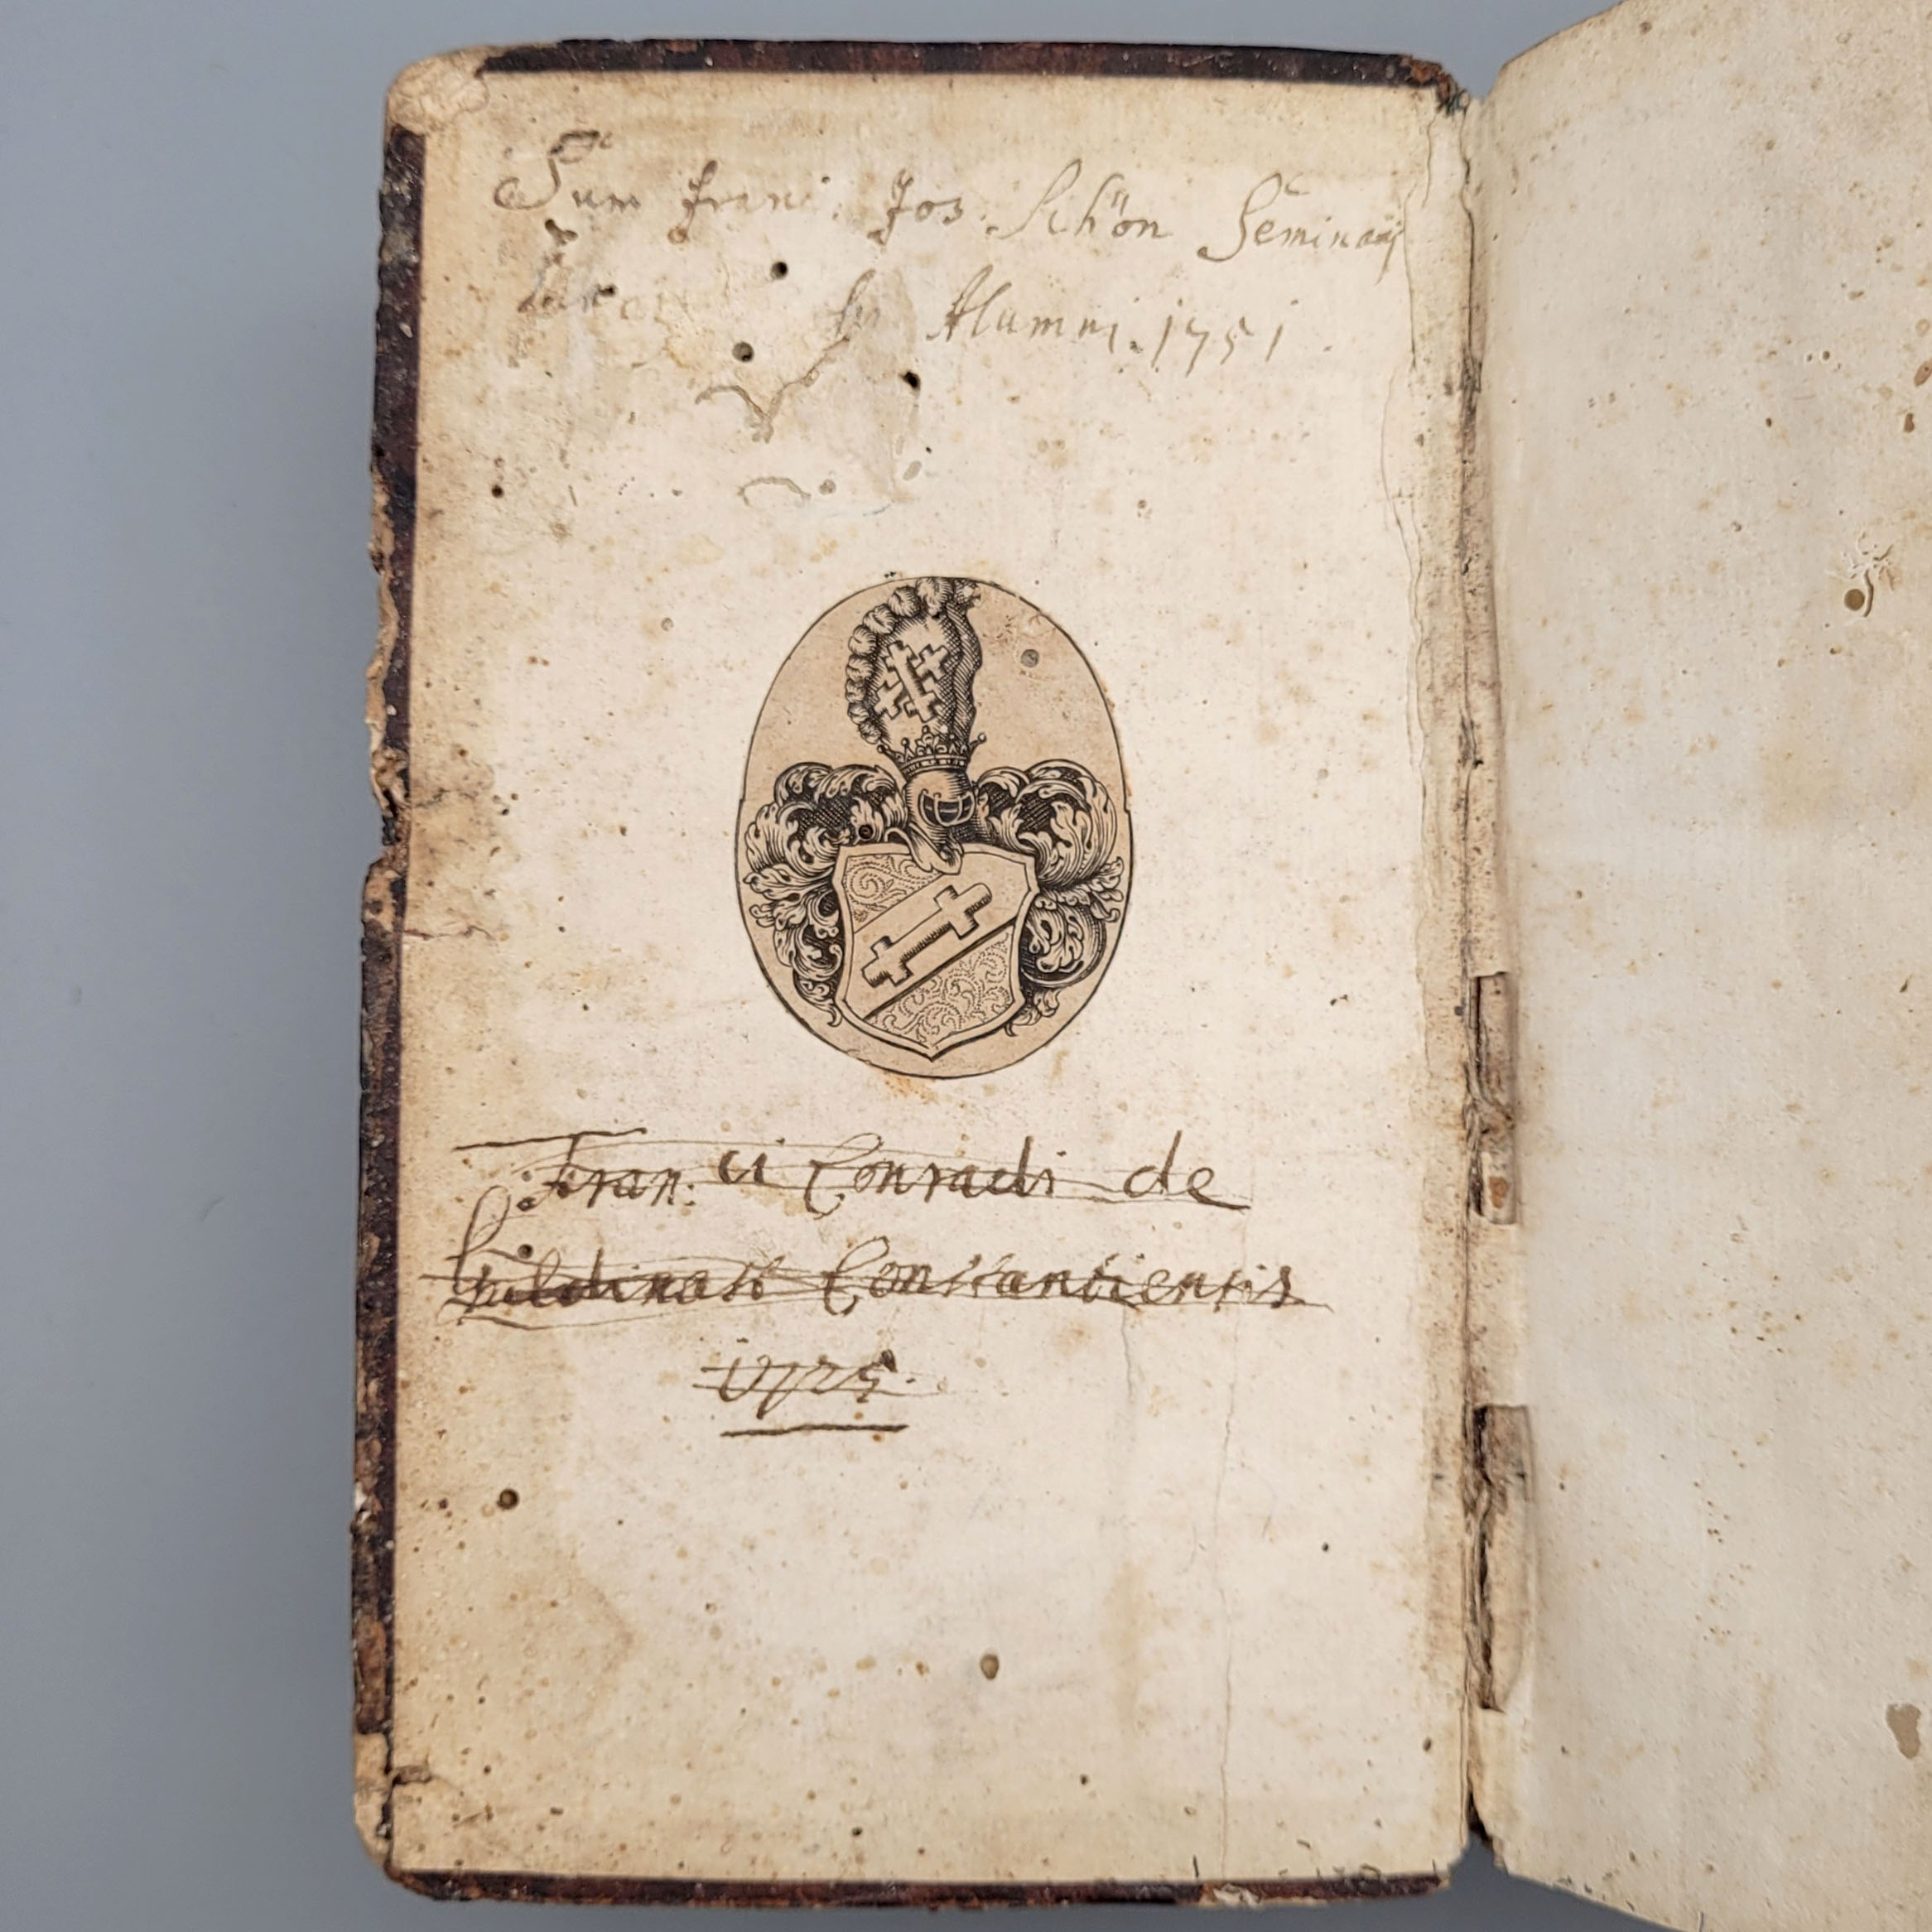 Sum Fran: Jos. Schön Seminarij
Alumni. 1751.
Fran: ci Conradi de
Guldinast Constantiensis
1725.